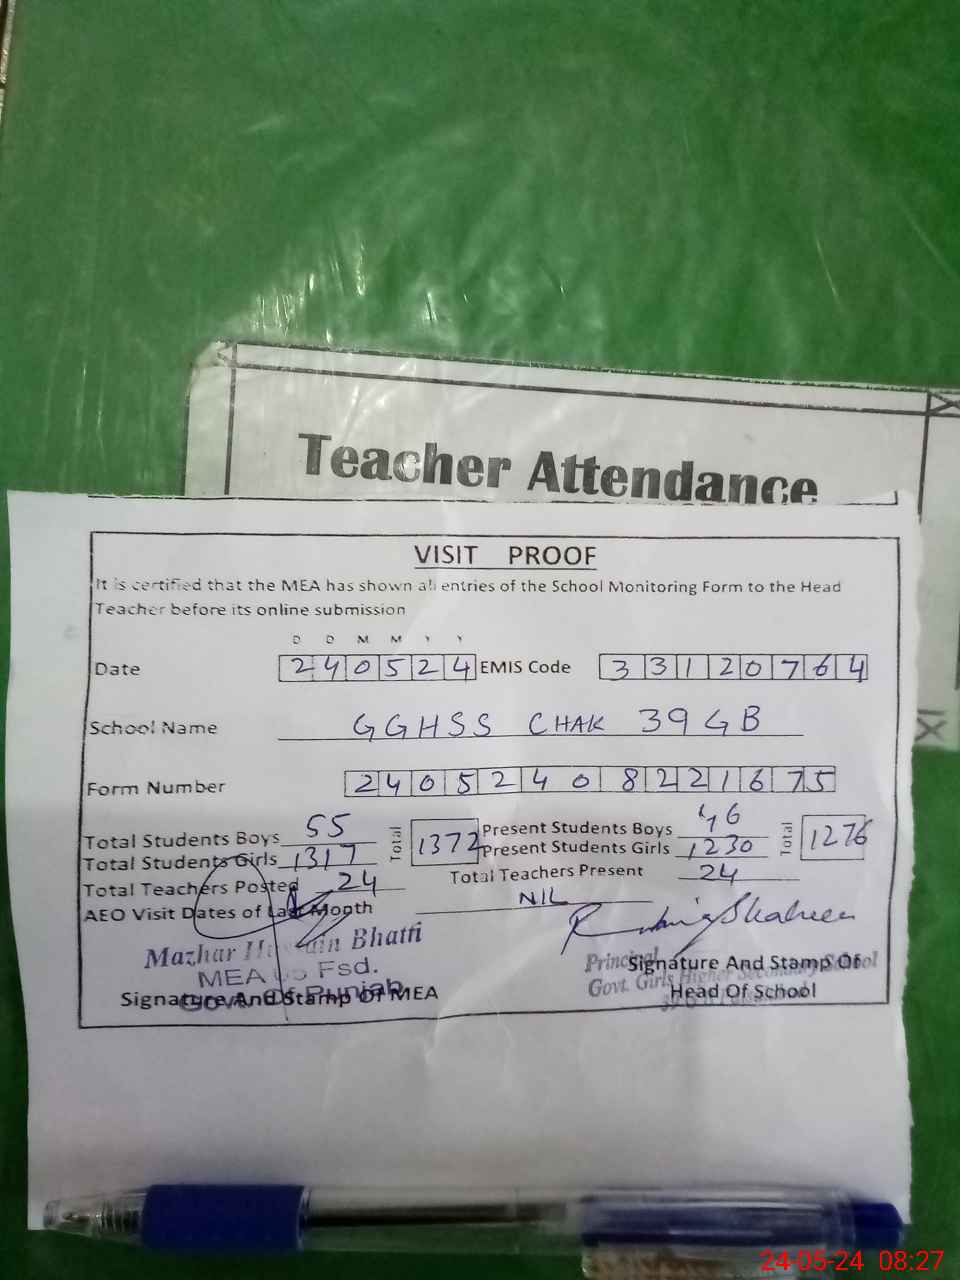 Teacher Attendance
VISIT PROOF
It is certified that the MEA has shown all entries of the School Monitoring Form to the Head
Teacher before its online submission
D D M M Y Y
Date 240524 EMIS Code 33120764
School Name GGHSS CHAK 39 GB
Form Number 24052408221675
Total Students Boys 55 Total 1372 Present Students Boys 46 Total 1276
Total Students Girls 1317 Present Students Girls 1230
Total Teachers Posted 24 Total Teachers Present 24
AEO Visit Dates of Last Month NIL
Mazhar Hussain Bhatti
MEA Fsd.
Govt. Of Punjab
Signature And Stamp Of MEA
Principal
Govt. Girls Higher Secondary School
Signature And Stamp Of
Head Of School
IX
24-05-24 08:27